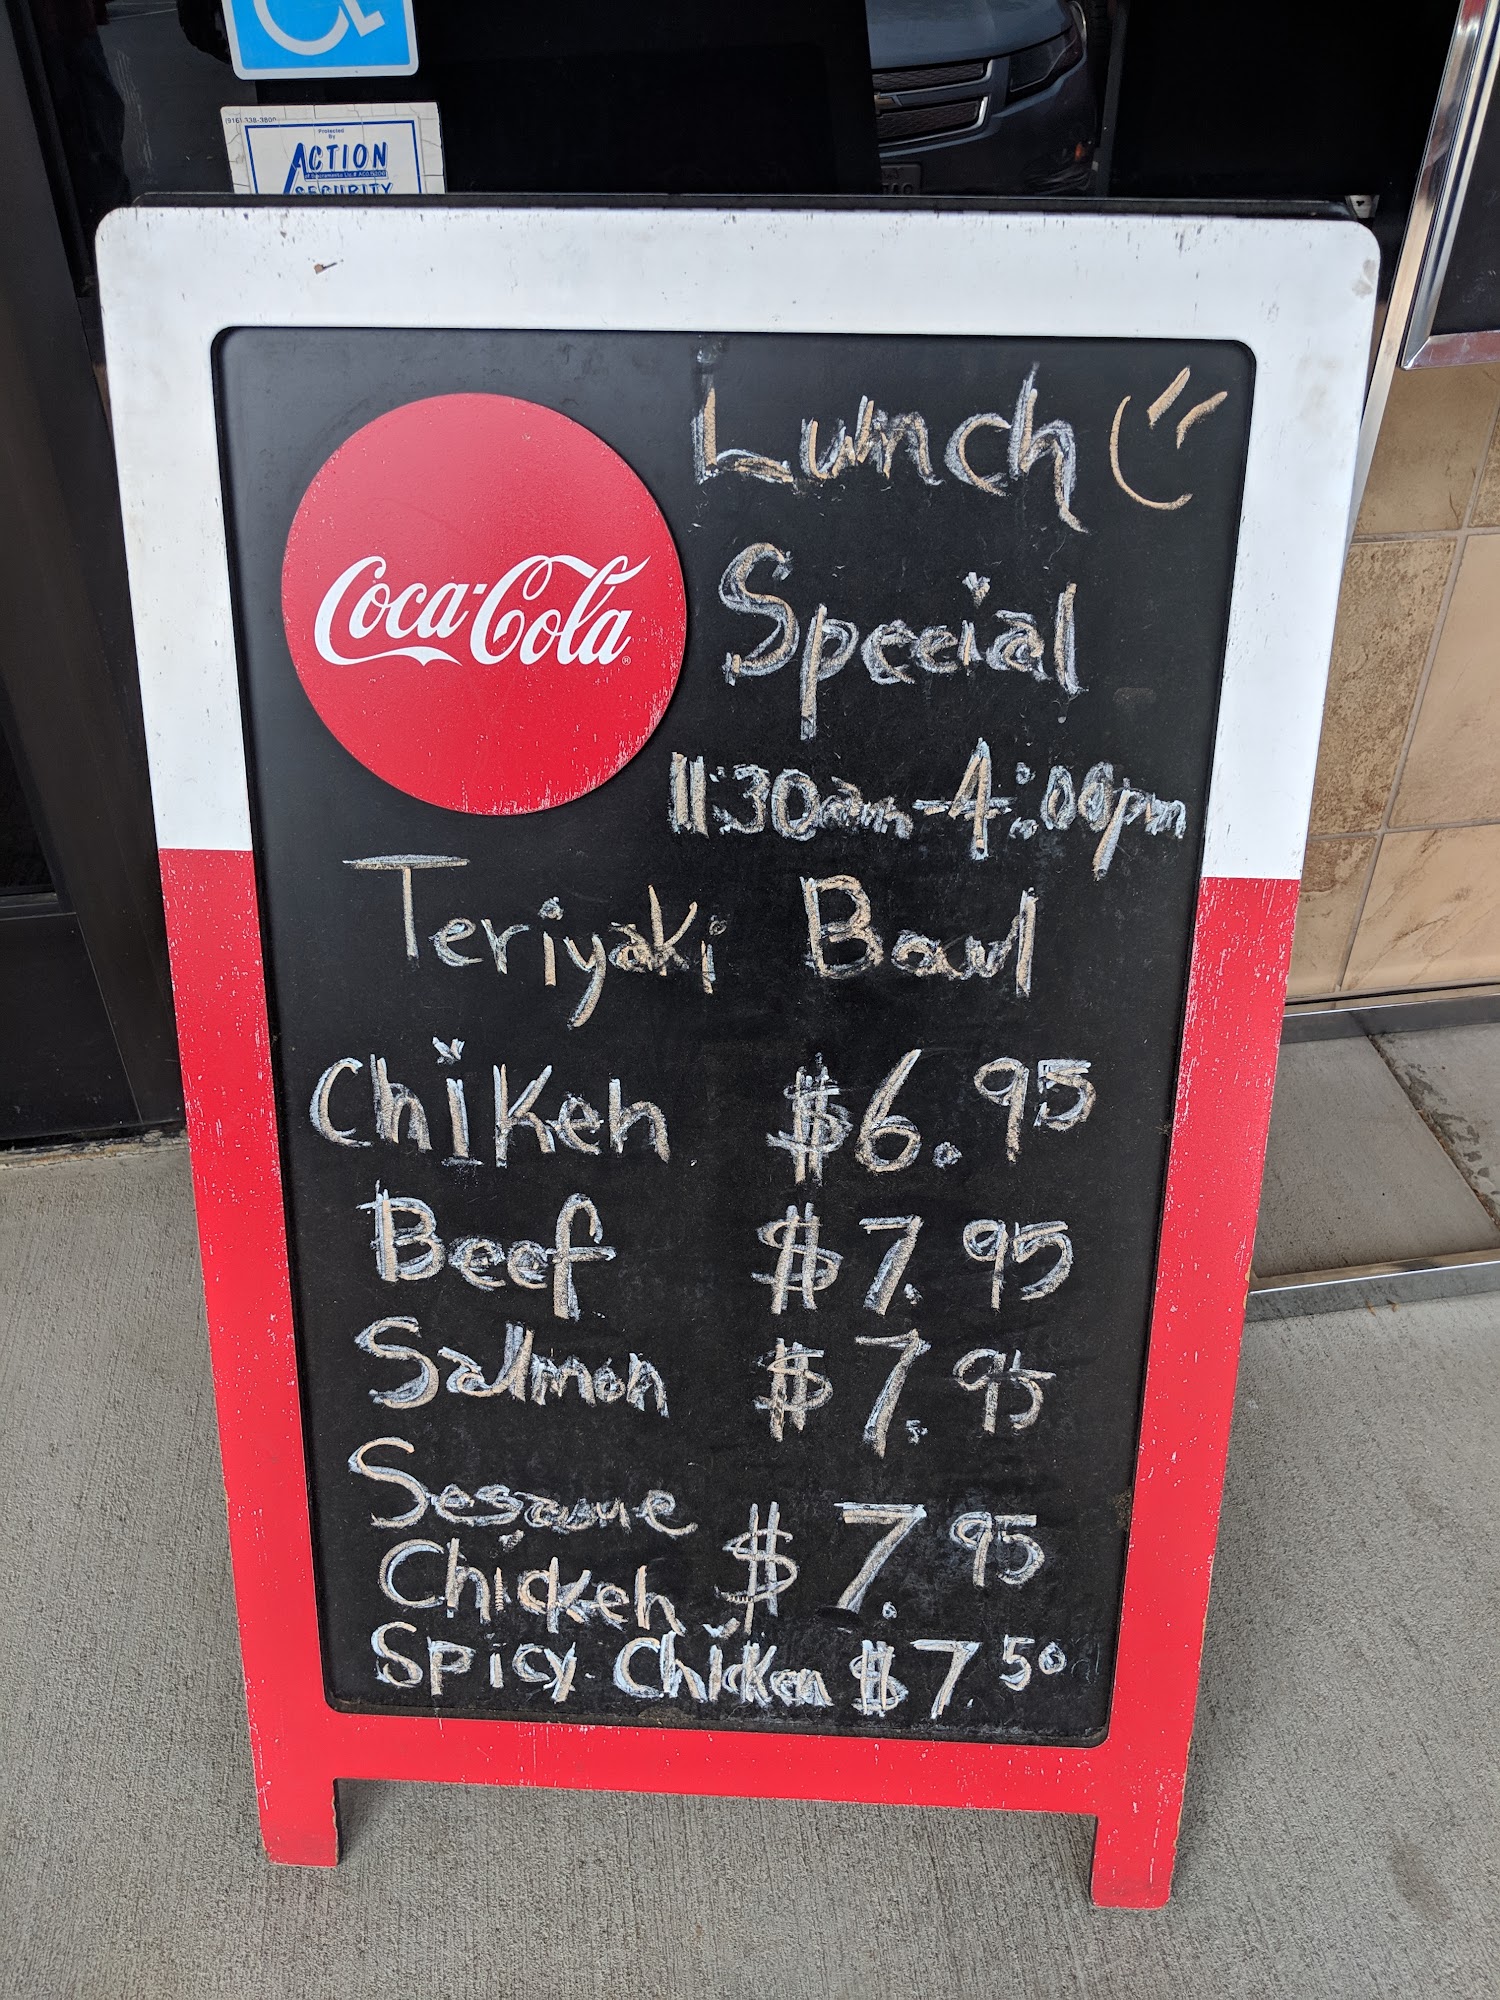 (916) 338-3800
Protected
By
ACTION
SECURITY
Coca-Cola
Lunch
Special
11:30am-4:00pm
Teriyaki Bowl
Chiken $6.95
Beef $7.95
Salmon $7.95
Sesame
Chicken $7.95
Spicy Chicken $7 50